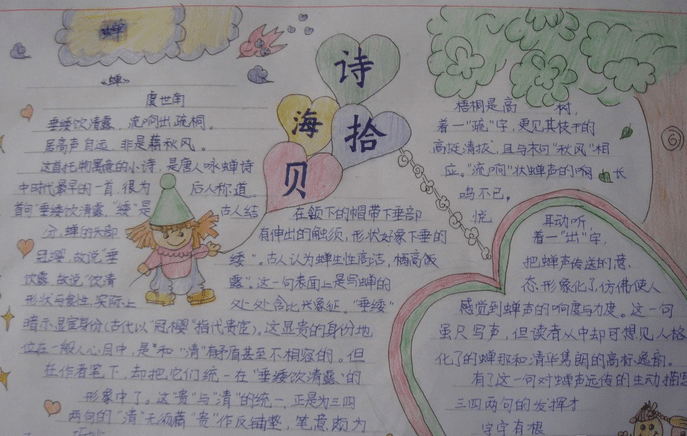 蝉
诗
海
拾
贝
《蝉》
虞世南
垂緌饮清露，流响出疏桐。
居高声自远，非是藉秋风。
这首托物寓意的小诗，是唐人咏蝉诗
中时代最早的一首，很为 后人称道
首句"垂緌饮清露"，"緌"是 古人结
在颔下的帽带下垂部
分，蝉的头部 有伸出的触须，形状好象下垂的
緌"。古人认为蝉生性高洁，栖高饮
饮露，故说"饮清 露"。这一句表面上是写蝉的
形状与食性，实际上 处处含比兴象征。"垂緌"
暗示显宦身份(古代以"冠缨"指代贵宦)。这显贵的身份地
位在一般人心目中，是 和"清"有矛盾甚至不相容的。但
在作者笔下，却把它们统一在"垂緌饮清露"的
形象中了。这"贵"与"清"的统一，正是为三四
两句的"清"无须藉"贵"作反铺垫，笔意颇为
梧桐是高 树，
着一"疏"字，更见其枝干的
高挺清拔，且与末句"秋风"相
应。"流响"状蝉声的 长
鸣不已，
悦 耳动听，
着一"出"字，
把蝉声传送的意
态形象化了，仿佛使人
感觉到蝉声的响度与力度。这一句
虽只写声，但读者从中却可想见人格
化了的蝉那和清华隽朗的高标逸韵。
有了这一句对蝉声远传的生动描
三四两句的发挥才
字字有根